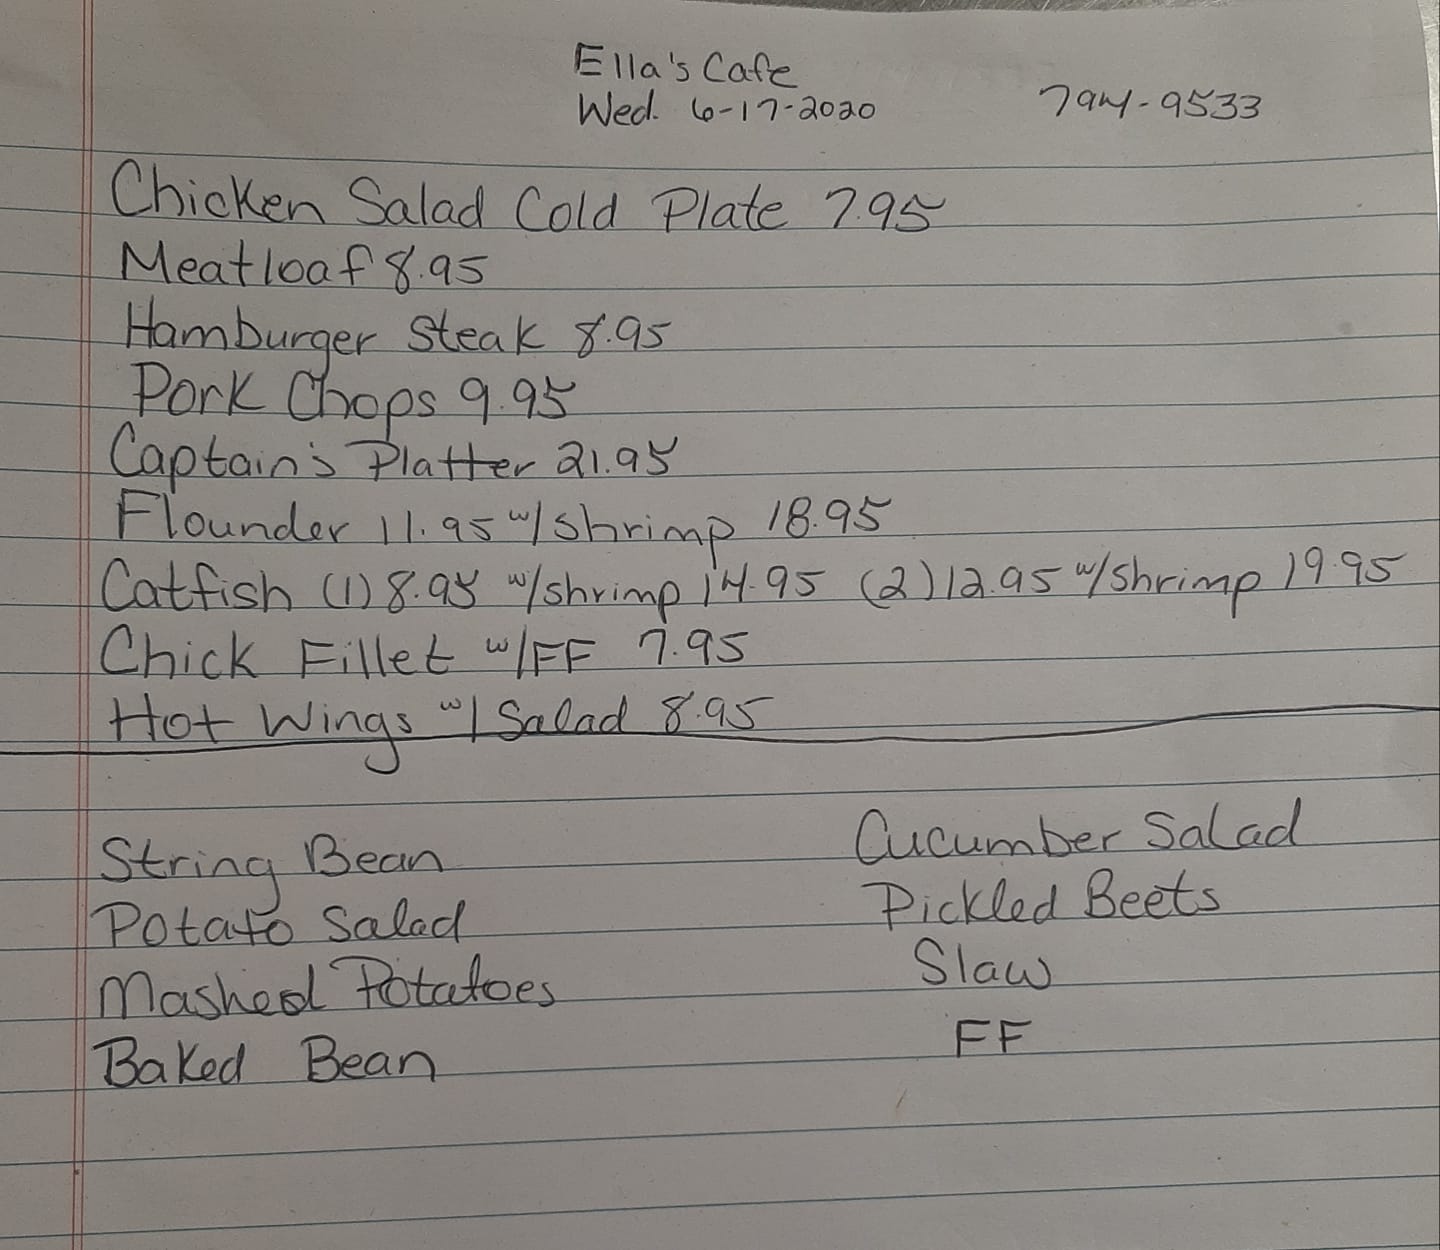 Ella's Cafe
Wed. 6-17-2020 794-9533
Chicken Salad Cold Plate 7.95
Meatloaf 8.95
Hamburger Steak 8.95
Pork Chops 9.95
Captain's Platter 21.95
Flounder 11.95 w/shrimp 18.95
Catfish (1) 8.95 w/shrimp 14.95 (2) 12.95 w/shrimp 19.95
Chick Fillet w/FF 7.95
Hot Wings w/Salad 8.95
String Bean
Potato Salad
Mashed Potatoes
Baked Bean
Cucumber Salad
Pickled Beets
Slaw
FF